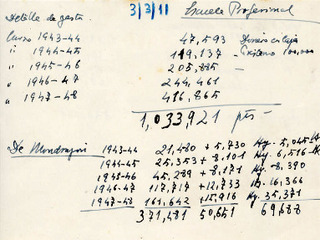 3/3/11
Detalle de gasto. Escuela Profesional
Curso 1943-44 47,593
" 1944-45 119,137 -
" 1945-46 205,885 -
" 1946-47 244,461
" 1947-48 416,865
1,033,921 pts -
De Mondragón 1943-44 21,480 + 5,730 Hy. 5,045
1944-45 25,353 + 8.101 Hy. 6,516
1945-46 45,289 + 8,171 Hy. 8,390
1946-47 117,717 + 12,733 Hy. 16,366
1947-48 161,642 + 15,916 Hy. 35,371
371,481 50,651 69,688